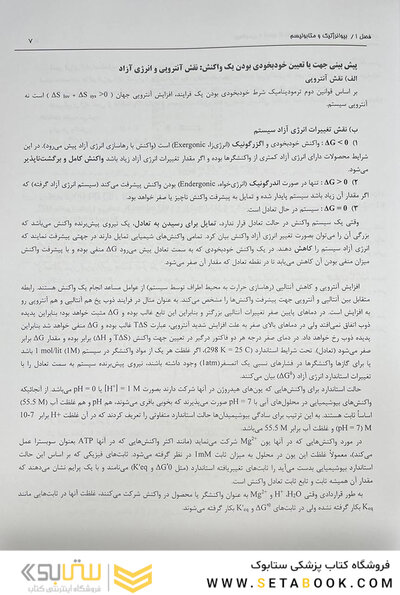 فصل ۱ / بیوانرژتیک و متابولیسم
۷
پیش بینی جهت یا تعیین خودبخودی بودن یک واکنش: نقش آنتروپی و انرژی آزاد
الف) نقش آنتروپی
بر اساس قوانین دوم ترمودینامیک شرط خودبخودی بودن یک فرایند، افزایش آنتروپی جهان ( ΔS sys + ΔS env >0 ) است نه
آنتروپی سیستم.
ب) نقش تغییرات انرژی آزاد سیستم
۱) ΔG < 0 : واکنش خودبخودی و اگزرگونیک (انرژی‌زا، Exergonic) است (واکنش با رهاسازی انرژی آزاد پیش می‌رود). در این
شرایط محصولات دارای انرژی آزاد کمتری از واکنشگرها بوده و اگر مقدار تغییرات انرژی آزاد زیاد باشد واکنش کامل و برگشت‌ناپذیر
می‌شود.
۲) ΔG > 0 : تنها در صورت اندرگونیک (انرژی‌خواه، Endergonic) بودن واکنش پیشرفت می‌کند (سیستم انرژی آزاد گرفته) که
اگر مقدار آن زیاد باشد سیستم پایدار شده و تمایل به پیشرفت واکنش ناچیز یا صفر خواهد بود.
۳) ΔG = 0 : سیستم در حال تعادل است.
وقتی یک سیستم واکنش در حالت تعادل قرار ندارد، تمایل برای رسیدن به تعادل، یک نیروی پیش‌برنده واکنش می‌باشد که
بزرگی آن را می‌توان بصورت تغییر انرژی آزاد واکنش بیان کرد. تمامی واکنش‌های شیمیایی تمایل دارند در جهتی پیشرفت نمایند که
انرژی آزاد سیستم را کاهش دهند. در یک واکنش خودبخودی که به سمت تعادل پیش می‌رود ΔG منفی بوده و با پیشرفت واکنش
میزان منفی بودن آن کاهش می‌یابد تا در نقطه تعادل که مقدار آن صفر می‌شود.
افزایش آنتروپی و کاهش آنتالپی (رهاسازی حرارت به محیط اطراف توسط سیستم) از عوامل مساعد انجام یک واکنش هستند. رابطه
متقابل بین آنتالپی و آنتروپی جهت پیشرفت واکنش‌ها را مشخص می‌کند. به عنوان مثال در فرایند ذوب یخ هم آنتالپی و هم آنتروپی رو
به افزایش است. در دماهای پایین صفر تغییرات آنتالپی بزرگتر و بنابراین این تابع غالب بوده و ΔG مثبت خواهد بود؛ بنابراین پدیده
ذوب اتفاق نمی‌افتد ولی در دماهای بالای صفر به علت افزایش شدید آنتروپی، عبارت TΔS غالب بوده و ΔG منفی خواهد شد بنابراین
پدیده ذوب رخ خواهد داد. در دمای صفر درجه هر دو فاکتور درگیر در تعیین جهت واکنش (TΔS و ΔH) برابر بوده و مقدار ΔG برابر
صفر می‌شود (تعادل). تحت شرایط استاندارد (298 K = 25 C)، اگر غلظت هر یک از مواد واکنشگر در سیستم 1 mol/lit (1M) باشد
یا برای گازها واکنشگرها در فشارهای نسبی یک اتمسفر (1atm) وجود داشته باشند، نیروی پیش‌برنده سیستم به سمت تعادل را با
تغییرات استاندارد انرژی آزاد (ΔG⁰) بیان می‌کنند.
حالت استاندارد برای واکنش‌هایی که یون‌های هیدروژن در آنها شرکت دارند بصورت [H⁺] = 1 M یا pH = 0 می‌باشد. از آنجائیکه
واکنش‌های بیوشیمیایی در محلول‌های آبی با pH = 7 صورت می‌پذیرند که بخوبی بافری می‌شوند، هم pH و هم غلظت آب (55.5 M)
اساساً ثابت هستند. به این ترتیب برای سادگی بیوشیمیدان‌ها حالت استاندارد متفاوتی را تعریف کردند که در آن غلظت H+ برابر 7-10
M (pH = 7) و غلظت آب برابر 55.5 M می‌باشد.
در مورد واکنش‌هایی که در آنها یون Mg²⁺ شرکت می‌نماید (مانند اکثر واکنش‌هایی که در آنها ATP بعنوان سوبسترا عمل
می‌کند)، معمولاً غلظت این یون در محلول به میزان ثابت 1mM در نظر گرفته می‌شود. ثابت‌های فیزیکی که بر اساس این حالت
استاندارد بیوشیمیایی بدست می‌آید را ثابت‌های تغییریافته استاندارد (مثل ΔG'0 و K'eq) می‌نامند و با یک پرایم نشان می‌دهند که
مقدار آن همیشه ثابت و تابع ثابت تعادل است.
به طور قراردادی وقتی H⁺، H₂O و Mg²⁺ به عنوان واکنشگر یا محصول در واکنش شرکت می‌کنند، غلظت آنها در ثابت‌هایی مانند
Keq بکار گرفته نشده ولی در ثابت‌های ΔG'⁰ و K'eq بکار گرفته می‌شوند.
ستابوک
فروشگاه اینترنتی کتاب
فروشگاه کتاب پزشکی ستابوک
WWW.SETABOOK.COM